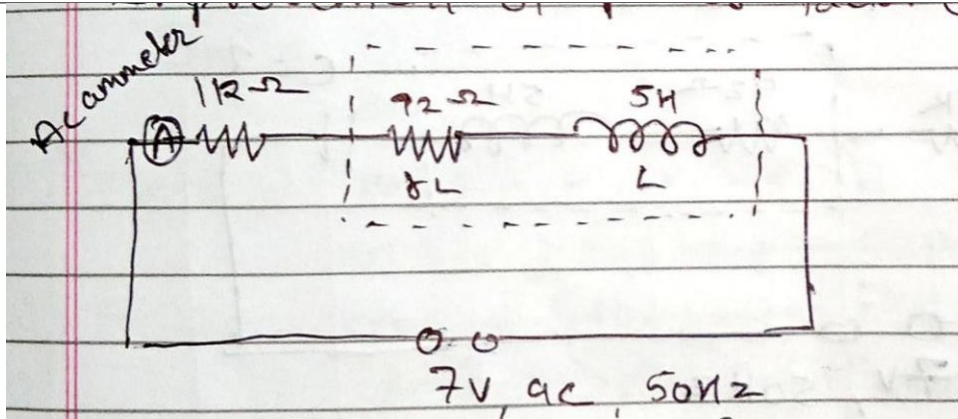 AC ammeter
A
1kΩ
92 Ω
5H
rL
L
7V, ac, 50Hz